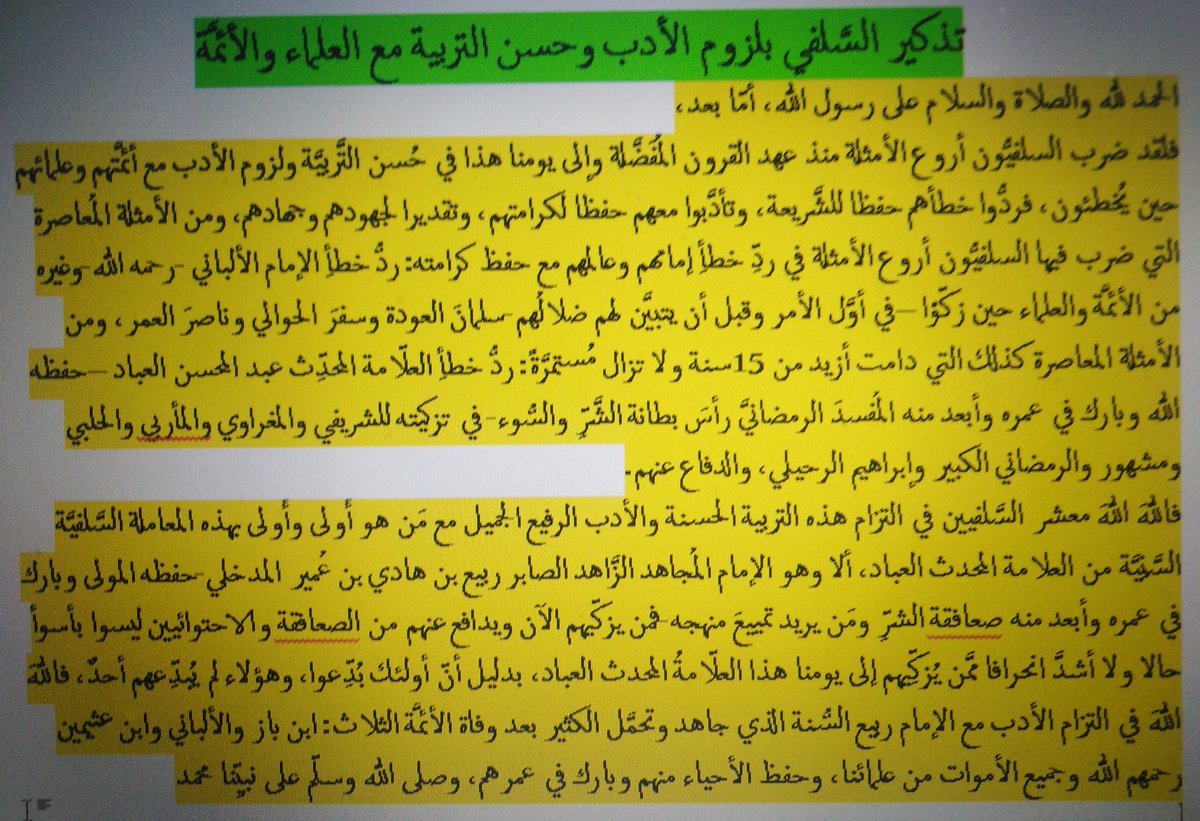 تذكير السَّلفي بلزوم الأدب وحسن التربية مع العلماء والأئمَّة
الحمد لله والصلاة والسلام على رسول الله، أمّا بعد،
فلقد ضرب السلفيُّون أروع الأمثلة منذ عهد القرون المُفَضَّلة وإلى يومنا هذا في حُسن التَّربيَّة ولزوم الأدب مع أئمَّتهم وعلمائهم
حين يُخطئون، فردُّوا خطأهم حفظا للشَّريعة، وتأدَّبوا معهم حفظا لكرامتهم، وتقديرا لجهودهم وجهادهم، ومن الأمثلة المُعاصرة
التي ضرب فيها السلفيُّون أروع الأمثلة في ردِّ خطأِ إمامهم وعالمهم مع حفظ كرامته: ردُّ خطأِ الإمام الألباني -رحمه الله- وغيره
من الأئمَّة والعلماء حين زكّوا –في أوَّل الأمر وقبل أن يتبيَّن لهم ضلالُهم- سلمانَ العودة وسفرَ الحوالي وناصرَ العمر، ومن
الأمثلة المعاصرة كذلك التي دامت أزيد من 15سنة ولا تزال مُستمرَّةً: ردُّ خطأِ العلّامة المحدِّث عبد المحسن العباد –حفظه
الله وبارك في عمره وأبعد منه المُفسدَ الرمضانيَّ رأسَ بطانة الشَّرِّ والسُّوء- في تزكيته للشريفي والمغراوي والمأربي والحلبي
ومشهور والرمضاني الكبير وإبراهيم الرحيلي، والدفاع عنهم.
فاللهَ اللهَ معشر السَّلفيين في التزام هذه التربية الحسنة والأدب الرفيع الجميل مع مَن هو أولى وأولى بهذه المعاملة السَّلفيَّة
السَّنِيَّة من العلامة المحدث العباد، ألا وهو الإمام المُجاهد الزَّاهد الصابر ربيع بن هادي بن عُمير المدخلي -حفظه المولى وبارك
في عمره وأبعد منه صعافقة الشرِّ ومَن يريد تمييعَ منهجه- فمن يزكّيهم الآن ويدافع عنهم من الصعافقة والاحتوائيين ليسوا بأسوأ
حالا ولا أشدَّ انحرافا ممَّن يُزكّيهم إلى يومنا هذا العلّامةُ المحدث العباد، بدليل أنّ أولئك بُدِّعوا، وهؤلاء لم يُبدِّعهم أحدٌ، فاللهَ
اللهَ في التزام الأدب مع الإمام ربيع السُّنة الذي جاهد وتحمَّل الكثير بعد وفاة الأئمَّة الثلاث: ابن باز والألباني وابن عثيمين
رحمهم الله وجميع الأموات من علمائنا، وحفظ الأحياء منهم وبارك في عمرهم، وصلى الله وسلّم على نبيِّنا محمد